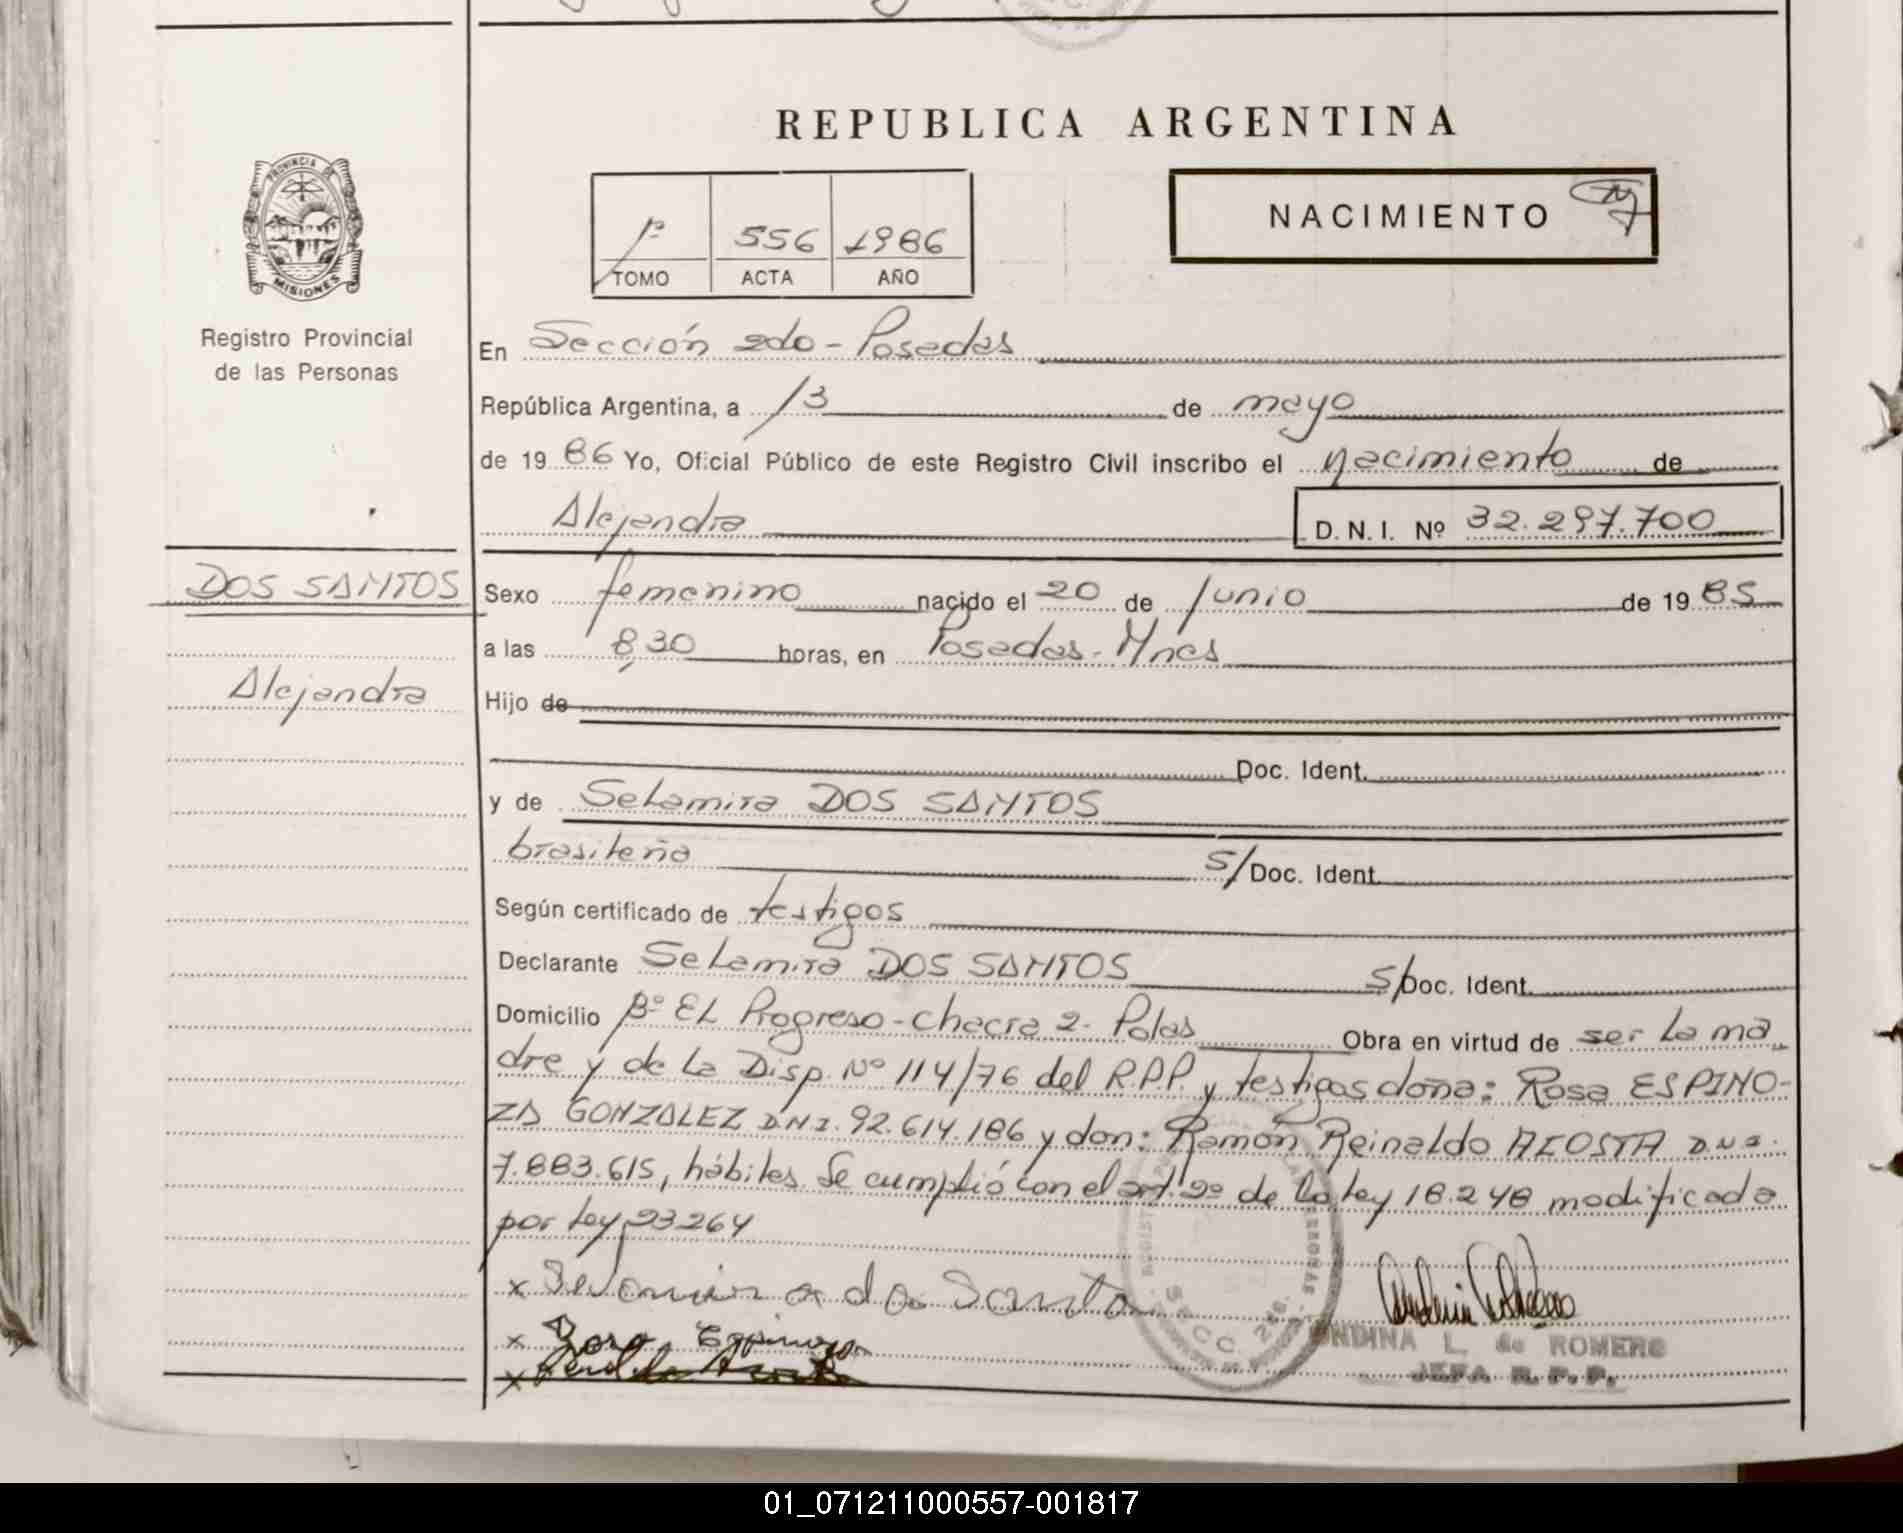 REPUBLICA ARGENTINA
PROVINCIA DE
MISIONES
Registro Provincial
de las Personas
1º 556 1986
TOMO ACTA AÑO
NACIMIENTO
En Sección 2do - Posadas
República Argentina, a 13 de mayo
de 19 86 Yo, Oficial Público de este Registro Civil inscribo el nacimiento de
Alejandra D. N. I. Nº 32.297.700
DOS SANTOS
Alejandra
Sexo femenino nacido el 20 de Junio de 19 85
a las 8,30 horas, en Posadas - Mnes
Hijo de
Doc. Ident.
y de Selamira DOS SANTOS
brasileña S/ Doc. Ident.
Según certificado de testigos
Declarante Selamira DOS SANTOS S/ Doc. Ident.
Domicilio Bº EL Progreso - Chacra 2 - Pdas Obra en virtud de ser la ma
dre y de la Disp. Nº 114/76 del R.P.P. y testigos doña: Rosa ESPINO-
ZA GONZALEZ D.N.I. 92.614.186 y don: Ramón Reinaldo ACOSTA D.N.I.
7.883.615, hábiles. Se cumplió con el art. 2º de la ley 18.248 modificada
por ley 23264
x Selamira do Santo
x Rosa Espinoza
x
ONDINA L. de ROMERO
JEFA R.P.P.
01_071211000557-001817